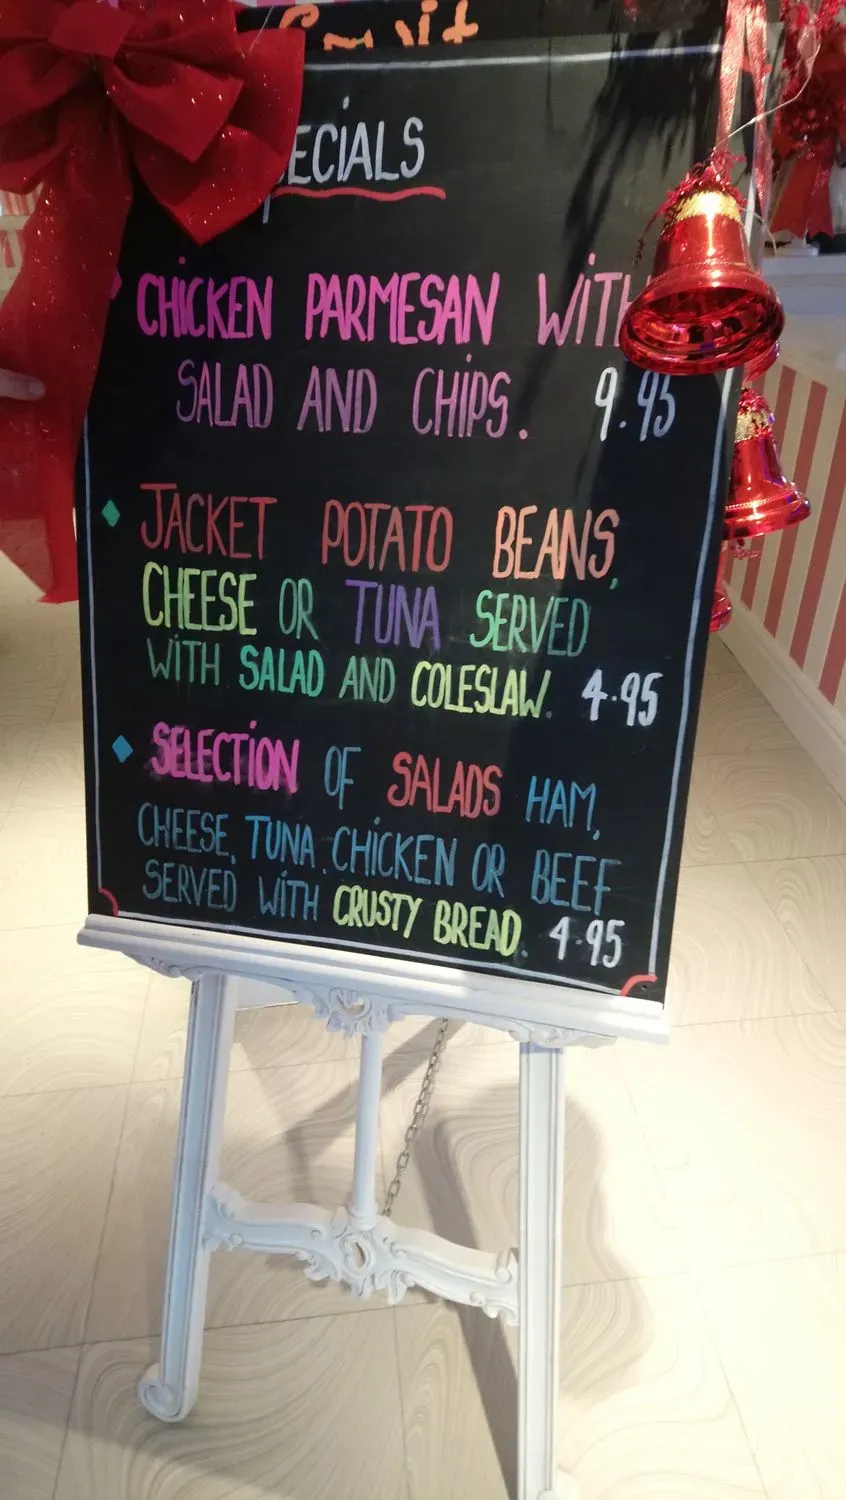 ECIALS
CHICKEN PARMESAN WITH
SALAD AND CHIPS. 9.95
JACKET POTATO BEANS,
CHEESE OR TUNA SERVED
WITH SALAD AND COLESLAW. 4.95
SELECTION OF SALADS HAM,
CHEESE, TUNA. CHICKEN OR BEEF
SERVED WITH CRUSTY BREAD. 4.95